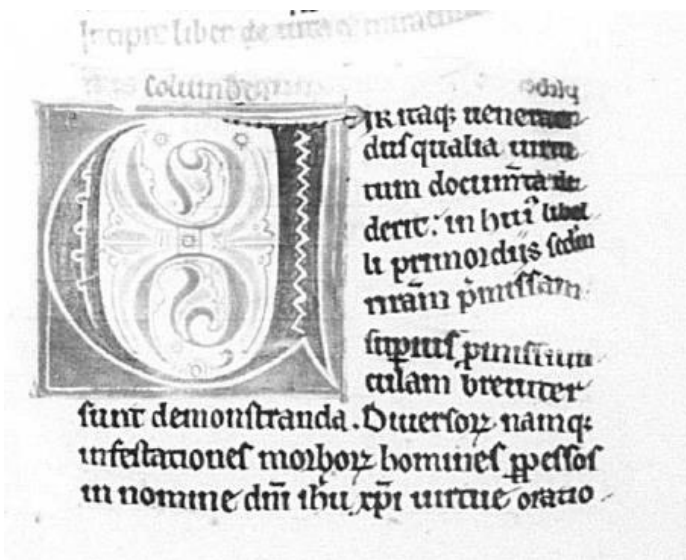 Incipit liber de uita et miraculis
columb
VIR itaq; ueneran
dus qualia uirtu
tum docum̅ta de
derit. in hui᾿ libel
li primordijs
nr̅am p̅missam
superius
culam breuiter
sunt demonstranda. Diuersoꝝ namq;
infestationes morboꝝ homines ꝑpessos
in nomine dn̅i ihu xp̅i uirtute oratio